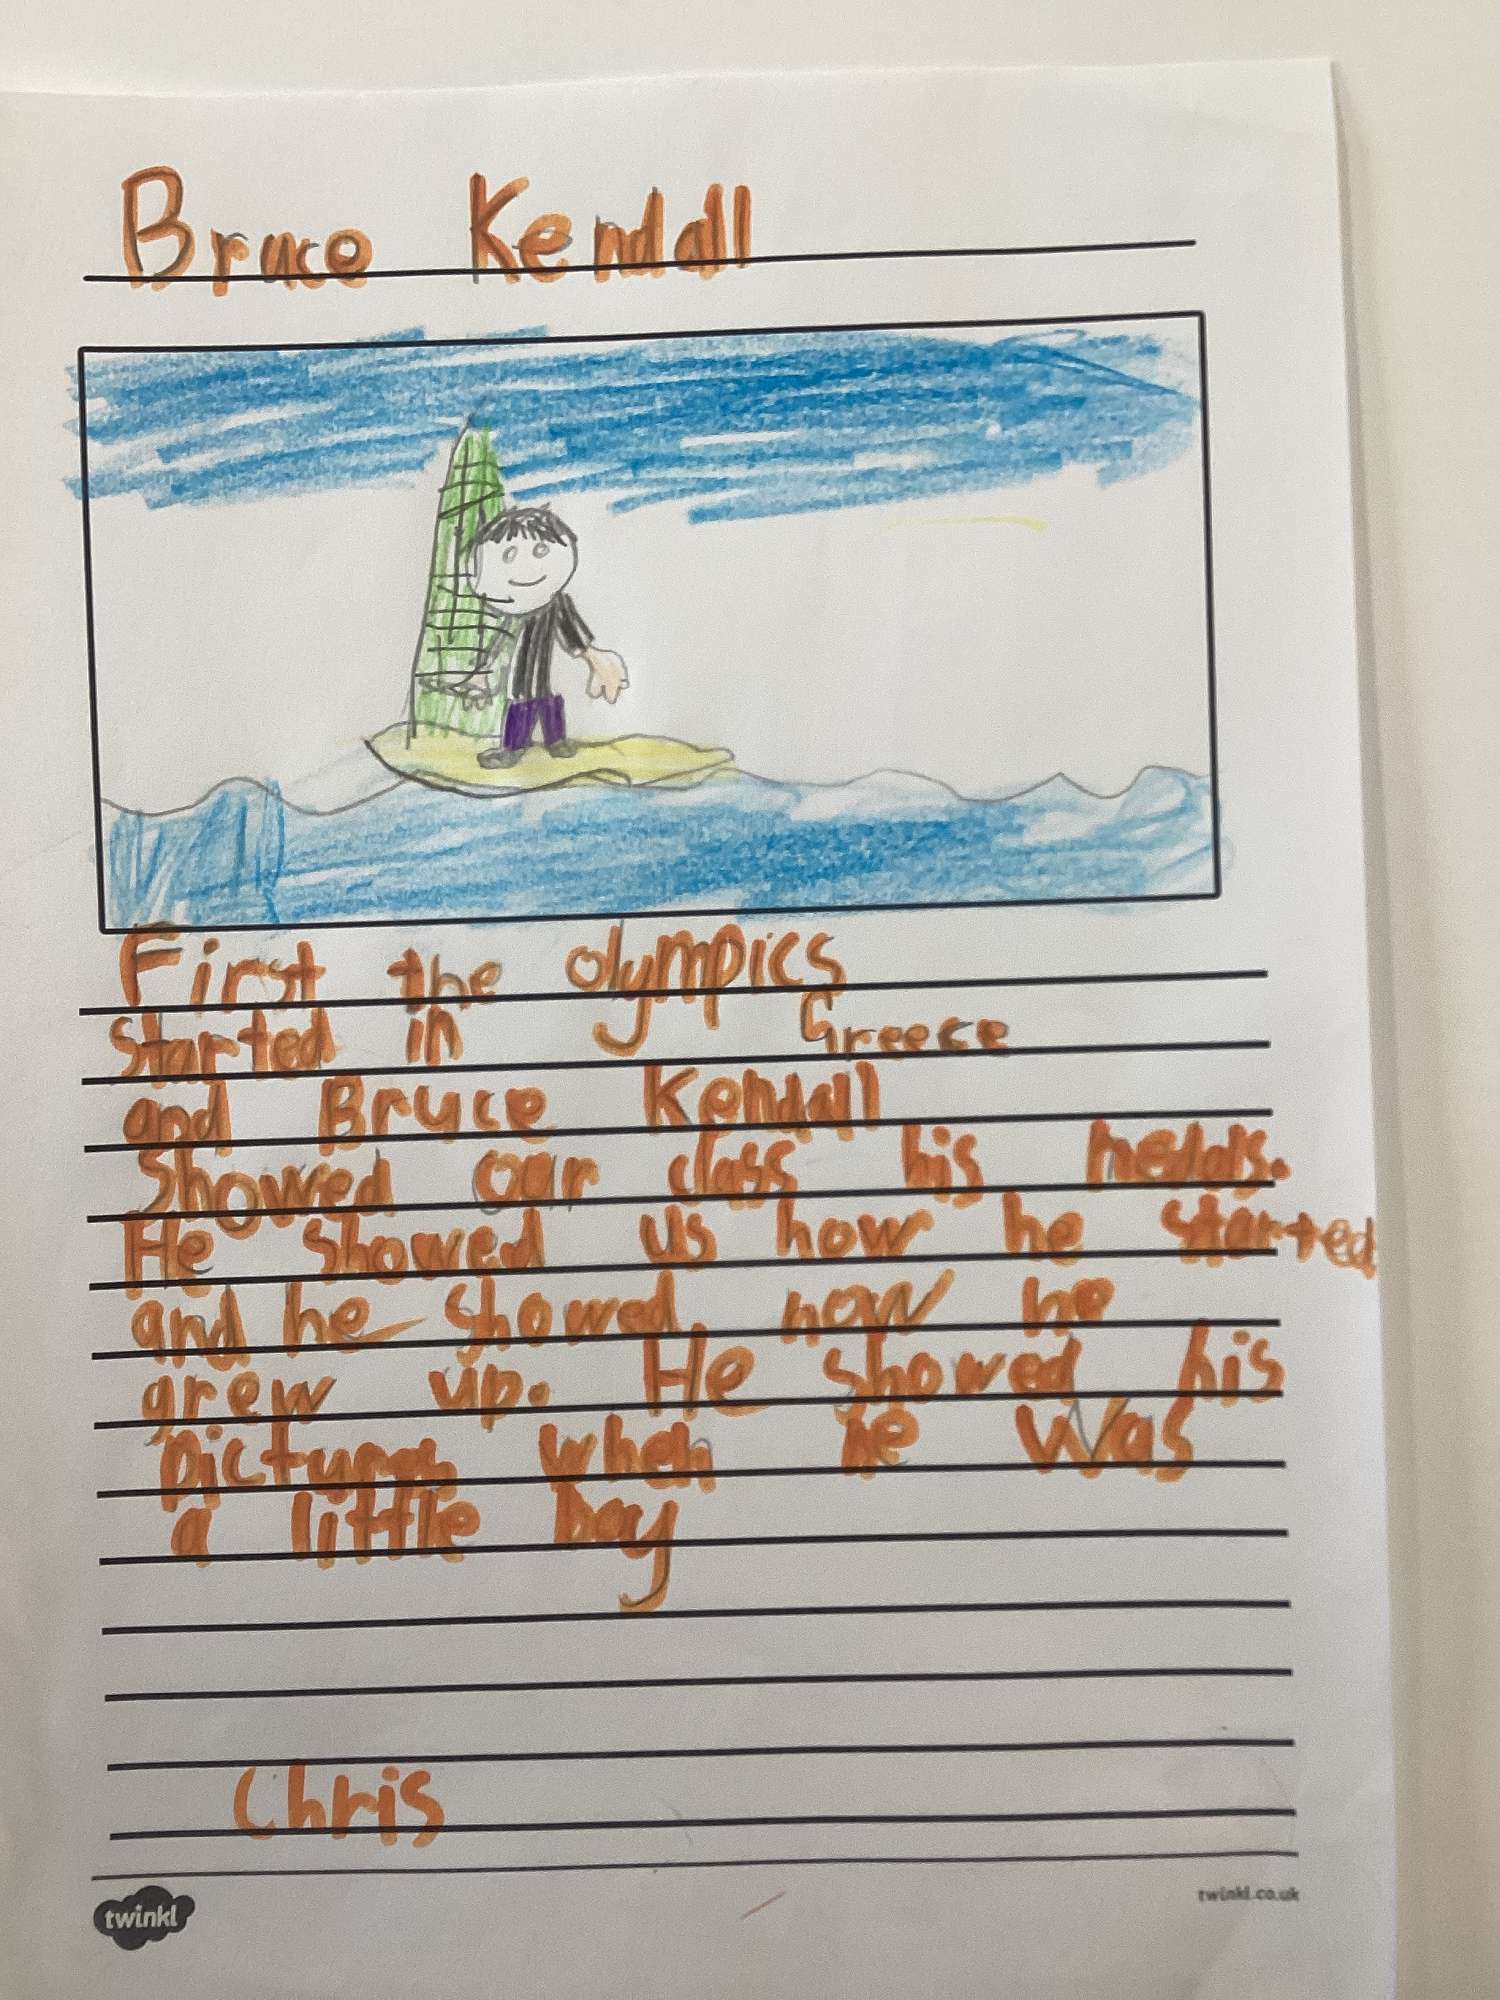 Bruce Kendall
First the olympics
started in Greece
and Bruce Kendall
Showed our class his medals.
He showed us how he started
and he showed how he
grew up. He showed his
pictures when he was
a little boy
Chris
twinkl
twinkl.co.uk